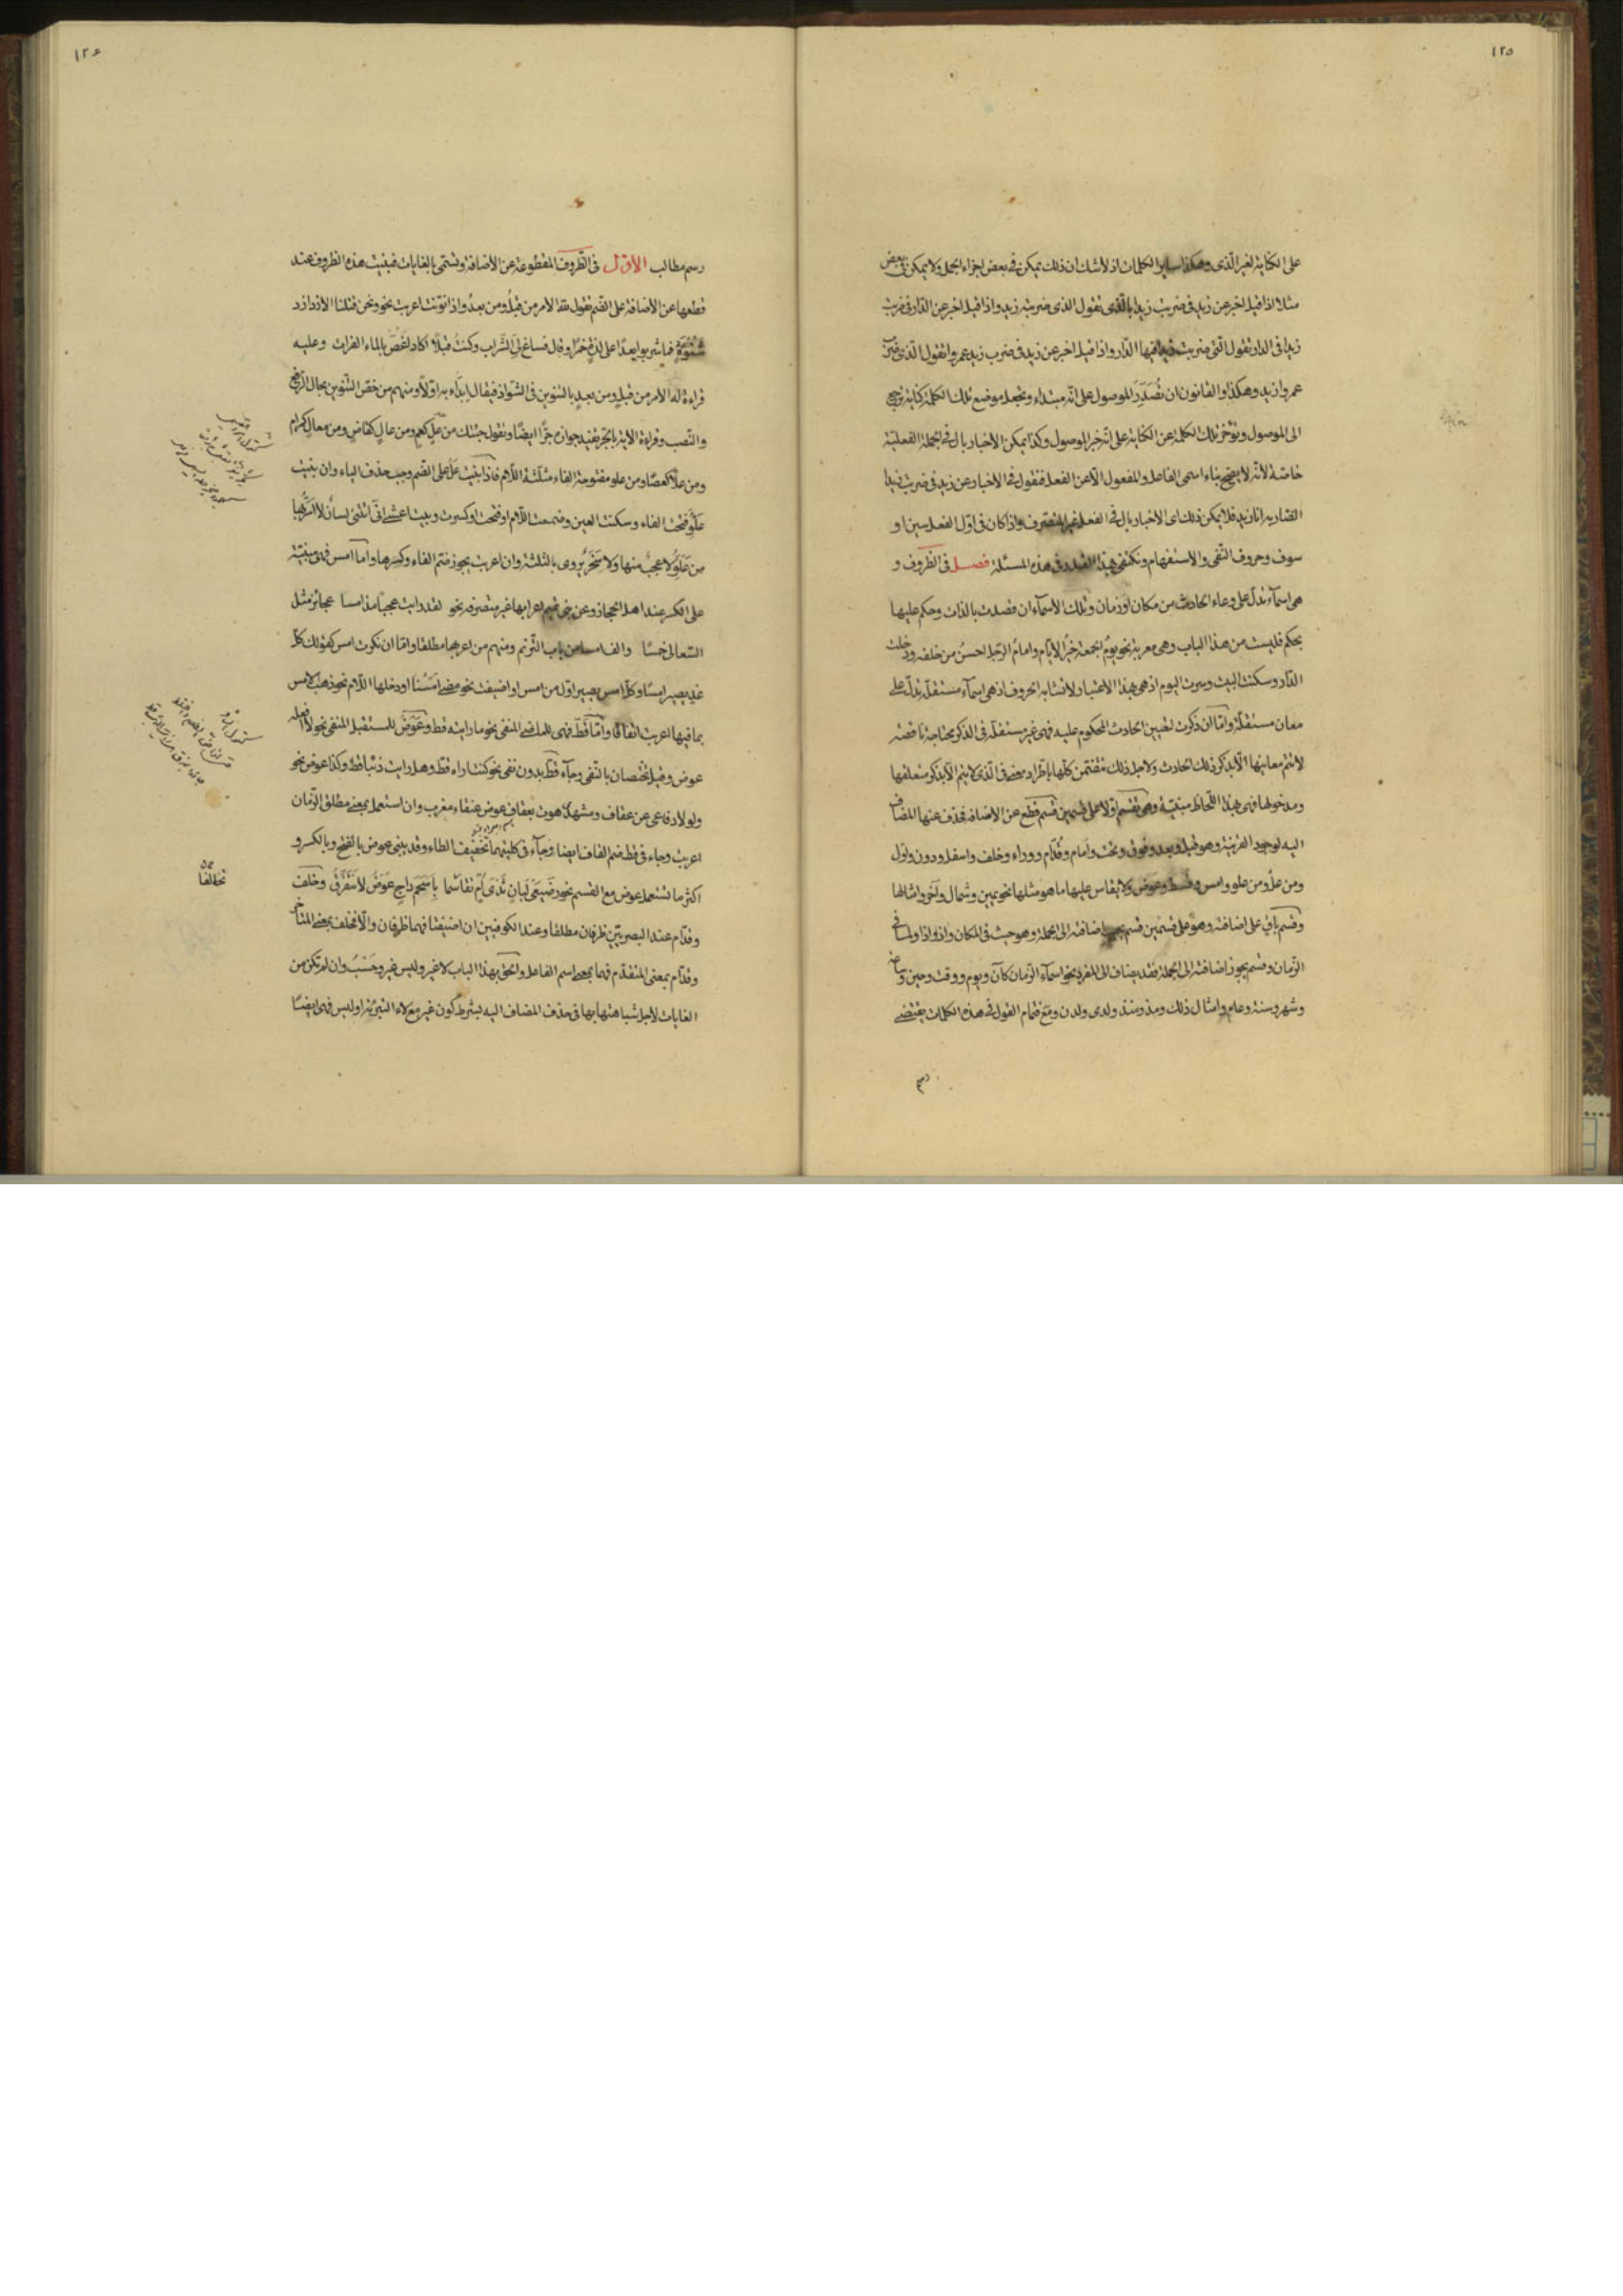 ١٢٥
على الكناية لغير الّذى وهكذا ساير الكلمات اذ لا شك ان ذلك يمكن فى بعض اجزاء الجمل ولا يمكن فى بعض
مثلا اذا قيل اخبر عن زيد فى ضربت زيدا بالّذى تقول الذى ضربته زيد واذا قيل اخبر عن الدّار فى ضربت
زيدا فى الدار تقول الّتى ضربت زيدا فيها الدّار واذا قيل اخبر عن زيد فى ضرب زيد عمروا تقول الّذى ضرب
عمروا زيد وهكذا والقانون ان تُصَدِّرَ الموصول على انّه مبتداء وتجعل موضع تلك الكلمة كناية ترجع
الى الموصول وتؤخر تلك الكلمة عن الكناية على انّه خبر الموصول وكذا يمكن الاخبار بال فى الجملة الفعليّة
خاصّة لأنّه لا يصحّ بناء اسمى الفاعل والمفعول الّا عن الفعل فتقول فى الاخبار عن زيد فى ضربت زيدا
الضاربه انا زيد فلا يمكن ذلك اى الاخبار بال فى الفعل غير المتصرف واذا كان فى اوّل الفعل سين او
سوف وحروف النّفى والاستفهام ونكتفى بهذا القدر فى هذه المسئلة فصل فى الظروف و
هى اسمآء تدلّ على وعاء الحادث من مكان او زمان وتلك الأسمآء ان قصدت بالذات وحكم عليها
بحكم فليست من هذا الباب وهى معربة نحو يومُ الجمعة خيرُ الأيّام وامامُ الرّجل احسنُ من خلفه ودخلت
الدّار وسكنت البيت وسرت اليوم اذ هى بهذا الاعتبار لا تشابه الحروف اذ هى اسمآء مستقلّة تدلّ على
معان مستقلّة وامّا ان ذكرت لتعيين الحادث المحكوم عليه فهى غير مستقلّة فى الذكر محتاجة ناقصة
لا تتم معانيها الّا بذكر ذلك الحادث ولاجل ذلك تتضمّن كلّها باطّراد معنى فى الّذى لا يتم الّا بذكر متعلقها
ومدخولها فهى بهذا اللّحاظ مبنيّة وهى تنقسم اوّلا على قسمين قسم قطع عن الاضافة فحذف عنها المضاف
اليه لوجود القرينة وهو قبل وبعد وفوق وتحت وامام وقدّام ووراء وخلف واسفل ودون واوّل
ومن علُ ومن علو وامس وقطّ وعوض ولا يقاس عليها ما هو مثلها نحو يمين وشمال وآخر وامثالها
وقسم باقٍ على اضافته وهو على قسمين قسم يجب اضافته الى الجملة وهو حيث فى المكان واذ واذا ولمّا فى
الزّمان وقسم يجوز اضافته الى الجملة فقد يضاف الى المفرد نحو اسمآء الزّمان كآن ويوم ووقت وحين وساعة
وشهر وسنة وعام وامثال ذلك ومذ ومنذ ولدى ولدن ومع فتمام القول فى هذه الكلمات يقتضى
رسم
١٢٦
رسم مطالب الأوّل فى الظّروف المقطوعة عن الأضافة وتسمّى بالغايات فبنيت هذه الظروف عند
قطعها عن الاضافة على الضّم تقول لله الامر من قبلُ ومن بعدُ واذا نوّنت اعربت نحو ونحن قتلنا الأزد ازد
شنوءةٍ فما شربوا بعدًا على لذّةٍ خمرًا وقال فساغ لِىَ الشّراب وكنتُ قبلًا اكاد اغصّ بالماء الفرات وعليه
قراءة لله الأمر من قبلٍ ومن بعدٍ بالتنوين فى الشواذ فيقال ابدَاء به اوّلًا ومنهم من خصّ التّنوين بحال الرفع
والنّصب وقراءة الاية بالجرّ تفيد جوازه جرًّا ايضًا وتقول جئتك من علٍ كعمٍ ومن عالٍ كقاضٍ ومن معالٍ كمرامٍ
ومن علًا كعصًا ومن علو مفتوحة الفاء مثلّثة اللّام فاذا بنيت علُ على الضّم وجب حذف الياء وان بنيت
علو فتحت الفاء وسكنت العين وضممت اللّام او فتحت او كسرت وبيت اعشى انّى اتتنى لسانٌ لا اسرّ بها
من علو لا عجبٌ منها ولا سخرٌ يروى بالثلثة وان اعربت يجوز ضمّ الفاء وكسرها وامّا امس فهى مبنيّة
على الكسر عند اهل الحجاز وعن بنى تميم اعرابها غير متصرفة نحو لقد رايت عجبًا مذ امسا عجائزًا مثل
السّعالى خمسًا والف امسا من باب التّرنم ومنهم من اعربها مطلقا وامّا ان نكرت امس كقولك كلّ
غدٍ يصير امسًا وكلّ امس يصير اوّل من امس او اضيفت نحو مضى امسُنا او دخلها اللّام نحو ذهب الامس
بما فيها اعربت اتفاقا وامّا قطّ فهى للماضى المنفى نحو ما رايته قط وعَوضُ للمستقبل المنفى نحو لا افعله
عوض وقيل تختصان بالنّفى وجآء قطّ بدون نفى نحو كنت اراه قط وهل رايت ذئبا قط وكذا عوض نحو
ولولا دفاعى عن عقاف ومشهدى هوت بعقاف عوض عنقاء مغرب وان استعمل بمعنى مطلق الزّمان
اعربت وجاء فى قط ضم القاف ايضا وجآء فى كليتهما تخفيف الطاء وقد يبنى عوض بالفتح وبالكسر و
اكثر ما تستعمل عوض مع القسم نحو رضيعَى لبانٍ ثدىَ امّ تقاسما بأسحم داجٍ عوضُ لا نتفرّق وخلف
وقدّام عند البصريّين ظرفان مطلقا وعند الكوفيين ان اضيفتا فهما ظرفان والّا فخلف بمعنى المتأخر
وقدّام بمعنى المتقدّم فهما بمعنى اسم الفاعل والحق بهذا الباب لا غير وليس غير وحَسْبُ وان لم تكن من
الغايات لأجل شباهتها بها فى حذف المضاف اليه بشرط كون غير مع لاء التبرئة او ليس فهى ايضًا